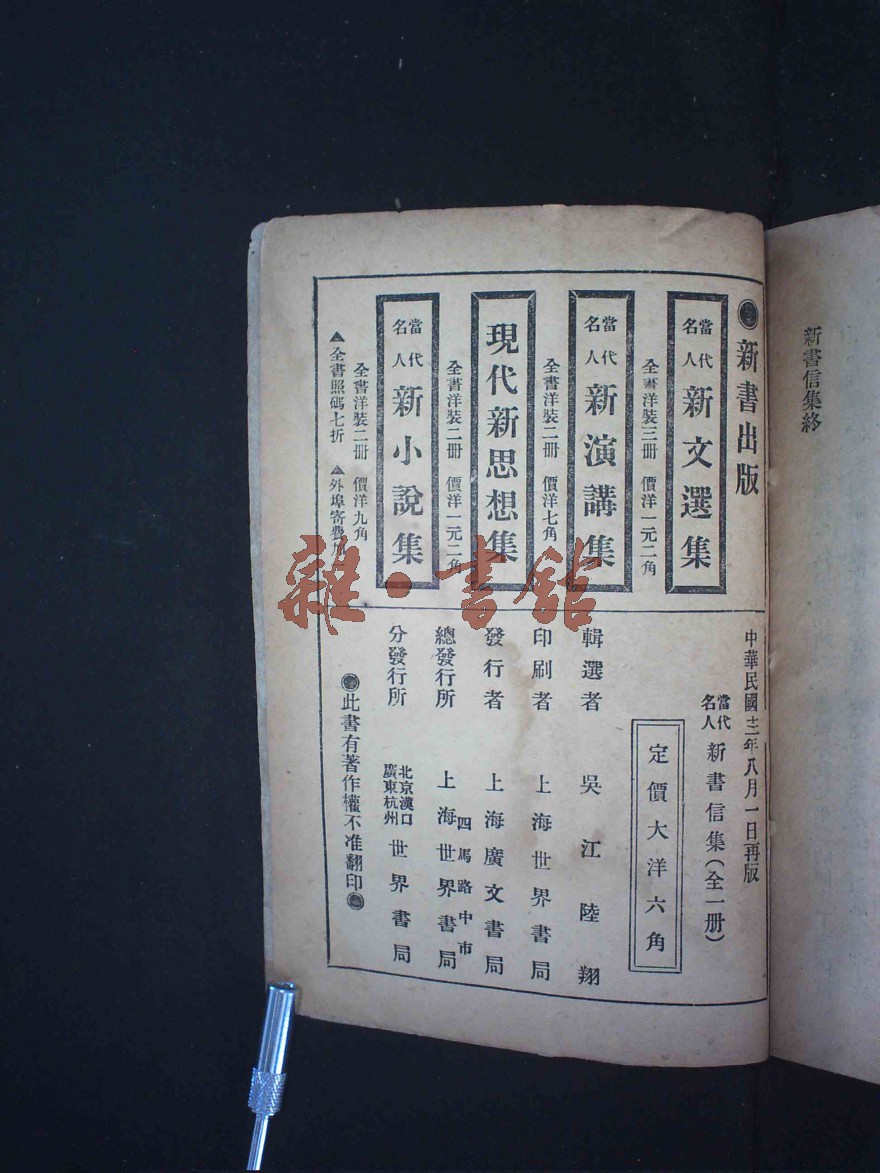 新書信集終
新書出版
當代名人新文選集
全書洋裝三册 價洋一元二角
當代名人新演講集
全書洋裝二册 價洋七角
現代新思想集
全書洋裝二册 價洋一元二角
當代名人新小說集
全書洋裝二册 價洋九角
▲全書照碼七折 ▲外埠寄費
中華民國十二年八月一日再版
當代名人新書信集(全一册)
定價大洋六角
輯選者 吳江陸翔
印刷者 上海世界書局
發行者 上海廣文書局
四馬路中市
總發行所 上海世界書局
分發行所 北京漢口廣東杭州 世界書局
此書有著作權不准翻印
雜·書館